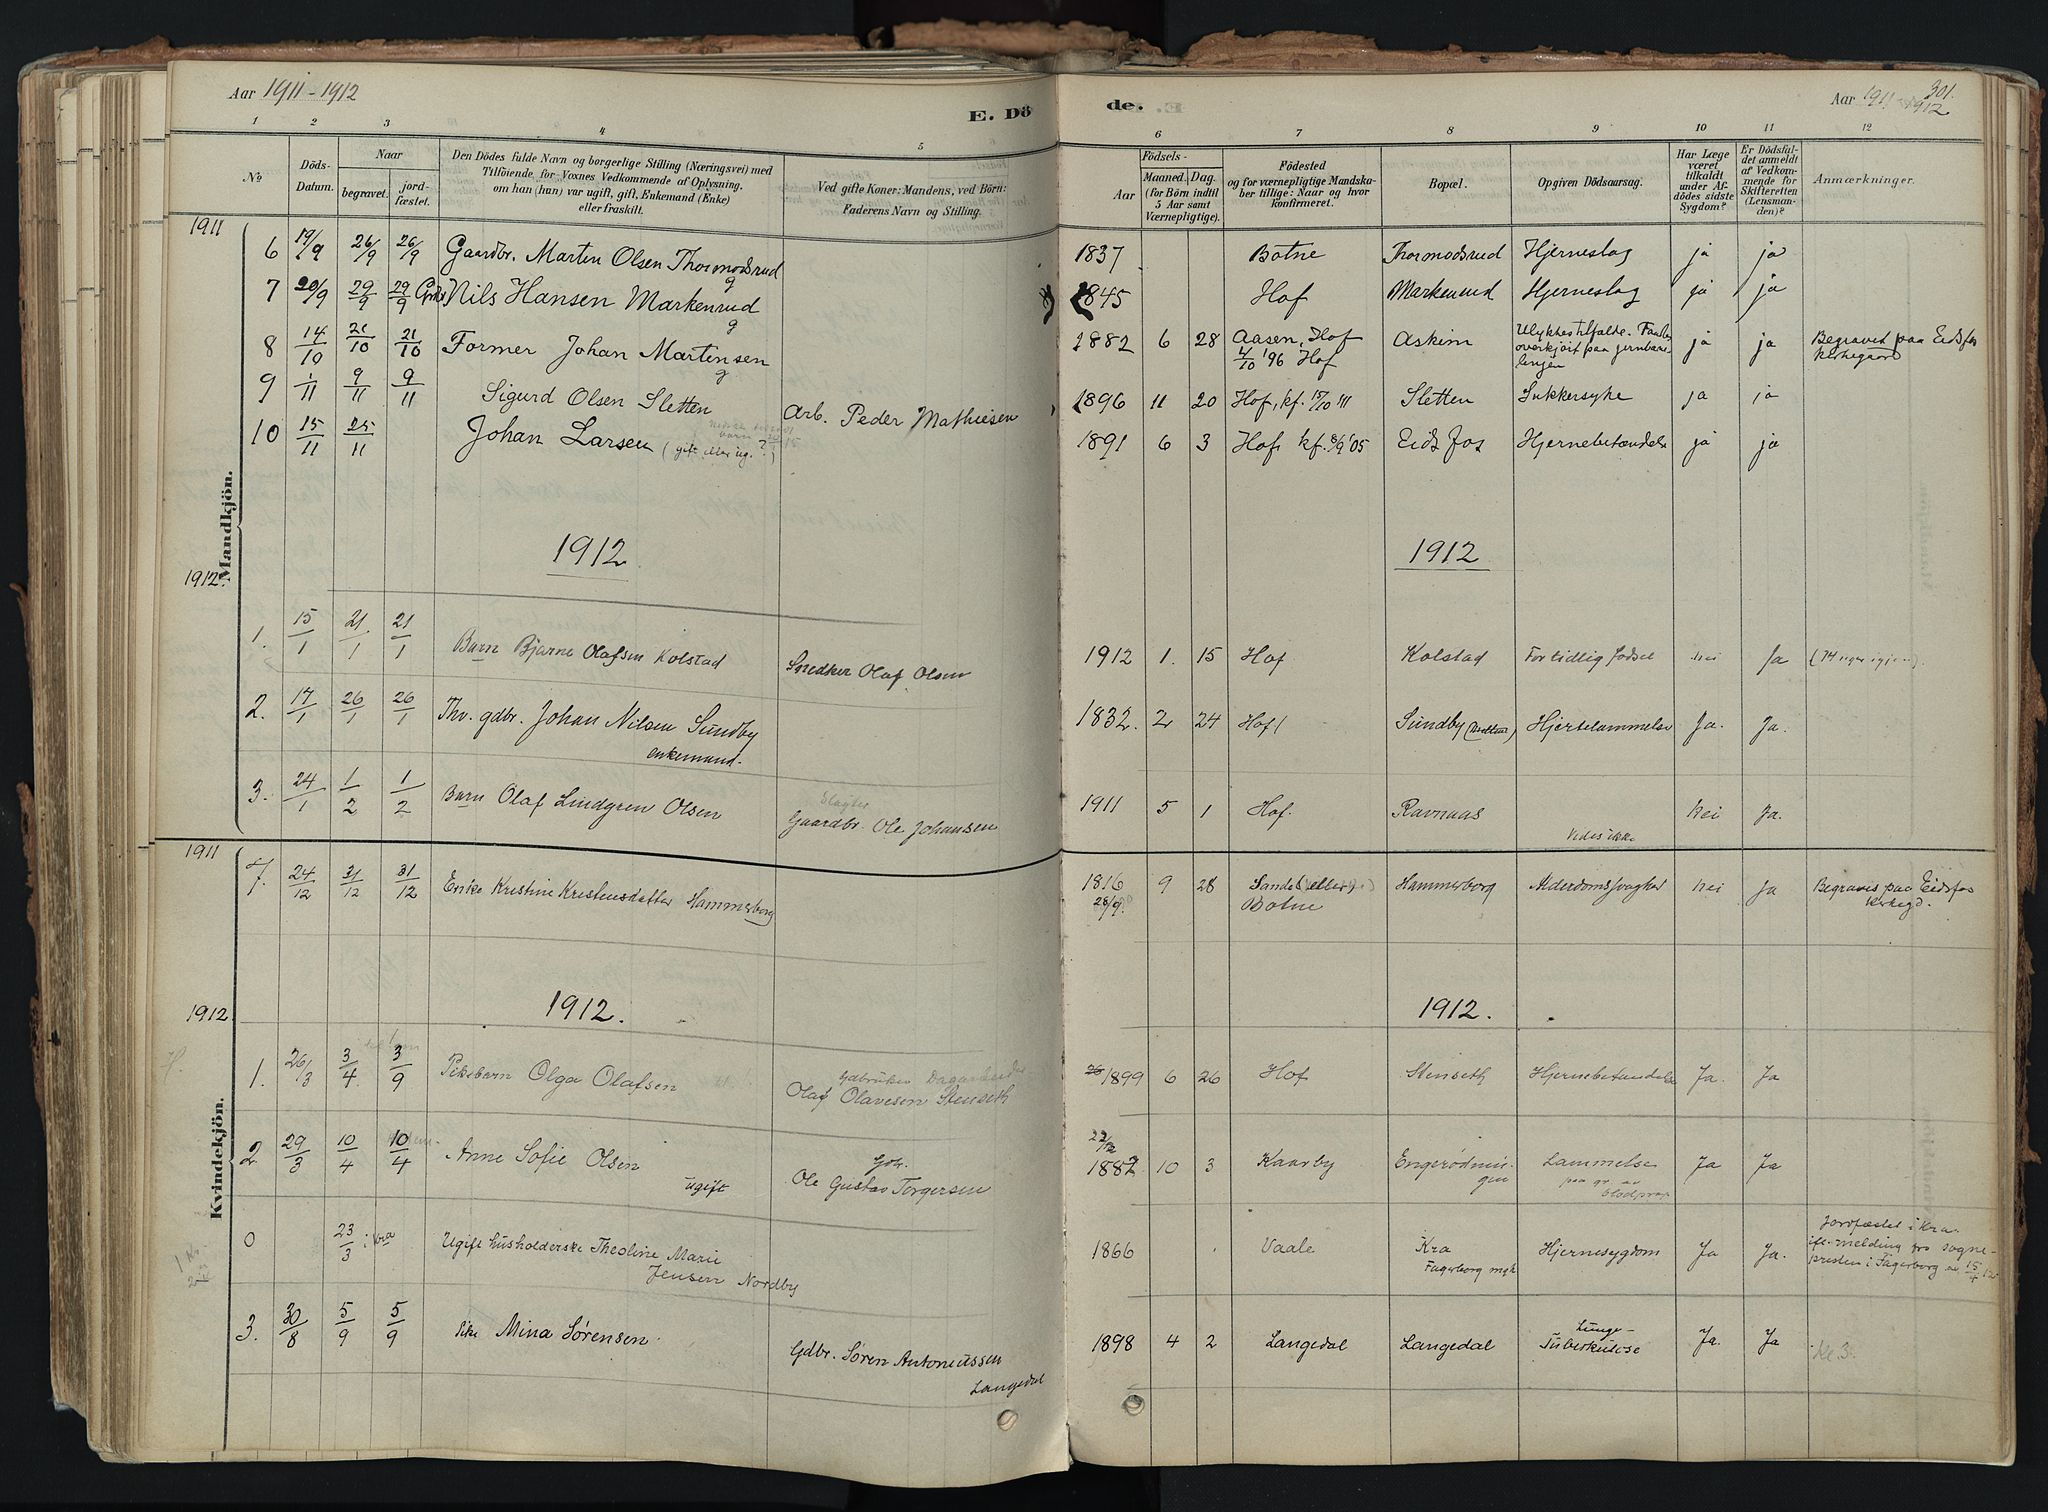 Aar 1911-1912
E. Dö
de.
Aar 1911-1912
301.
1 2 3 4 5 6 7 8 9 10 11 12
No
Döds-
Datum.
Naar
begravet.
jord-
fæstet.
Den Dödes fulde Navn og borgerlige Stilling (Næringsvei) med
Tilföiende, for Voxnes Vedkommende af Oplysning,
om han (hun) var ugift, gift, Enkemand (Enke)
eller fraskilt.
Ved gifte Koner: Mandens, ved Börn:
Faderens Navn og Stilling.
Födsels-
Aar
Maaned. Dag.
(for Börn indtil
5 Aar samt
Værnepligtige).
Födested
og for værnepligtige Mandska-
ber tillige: Naar og hvor
konfirmeret.
Bopæl.
Opgiven Dödsaarsag.
Har Læge
været
tilkaldt
under Af-
dödes sidste
Sygdom?
Er Dödsfal-
det anmeldt
af Vedkom-
mende for
Skifteretten
(Lensman-
den)?
Anmærkninger.
Mandkjön.
1911
6 19/9 26/9 26/9 Gaardbr. Marten Olsen Thormodsrud g 1837 Botne Thormodsrud Hjerneslag ja ja
7 20/9 29/9 29/9 Nils Hansen Markenrud g 1845 Hof Markenrud Hjerneslag ja ja
8 14/10 21/10 21/10 Former Johan Martensen g 1882 6 28 Aasen, Hof Askim Ulykkestilfælde. ja ja Begravet paa Eidsfos
4/10 '96 Hof overkjørt paa jernbane- Kirkegaard
linjen
9 1/11 9/11 9/11 Sigurd Olsen Sletten Arb. Peder Mathiesen 1896 11 20 Hof, kf. 15/10 '11 Sletten Sukkersyke ja ja
10 15/11 25/11 Johan Larsen (gift eller ug.?) 1891 6 3 Hof, kf. 8/9 '05 Eidsfos Hjernebetændelse ja ja
1912 1912
1912.
1. 15/1 21/1 21/1 Barn Bjarne Olafsen Kolstad Snedker Olaf Olsen 1912 1. 15 Hof Kolstad For tidlig fødsel nei Ja
2. 17/1 26/1 26/1 Thv. gdbr. Johan Nilsen Sundby 1832. 2 24 Hof Sundby Hjertelammelse Ja. Ja.
enkemand.
3. 24/1 1/2 1/2 Barn Olaf Lindgren Olsen Slagter 1911 5 1 Hof. Ravnaas Vides ikke nei Ja.
Gaardbr. Ole Johansen
Kvindekjön.
1911
7. 24/12 31/12 31/12 Enke Kristine Kristensdatter Hammerborg 1816 9 28 Sande (eller) Hammerborg Alderdomssvaghet nei Ja Begraves paa Eidsfos
28/9. Botne Kirkegd.
1912. 1912.
1912
1. 26/3 3/4 3/9 Pikebarn Olga Olafsen Gdbruker Dagarbeider 1899 6 26 Hof Stenseth Hjernebetændelse Ja. Ja
Olaf Olavesen Stenseth
2 29/3 10/4 10/4 Anne Sofie Olsen Gbr. 1882 10 3 Kaarby Engerødmin- Lammelse Ja Ja
ugift Ole Gustav Torgersen gen paa gr. av
blodprop
0 23/3 i Kra Ugift husholderske Theoline Marie 1866 Vaale Kra Hjernesygdom Ja Ja. Jordfæstet i Kra.
Jensen Nordby Fagerborg mgh ifl. melding fra sogne-
presten i Fagerborg av 15/4 12
3. 30/8 5/9 5/9 Pike Mina Sørensen Gdbr. Søren Antoniussen 1898 4 2 Langedal Langedal Lunge- Ja. Ja
Langedal Tuberkulose